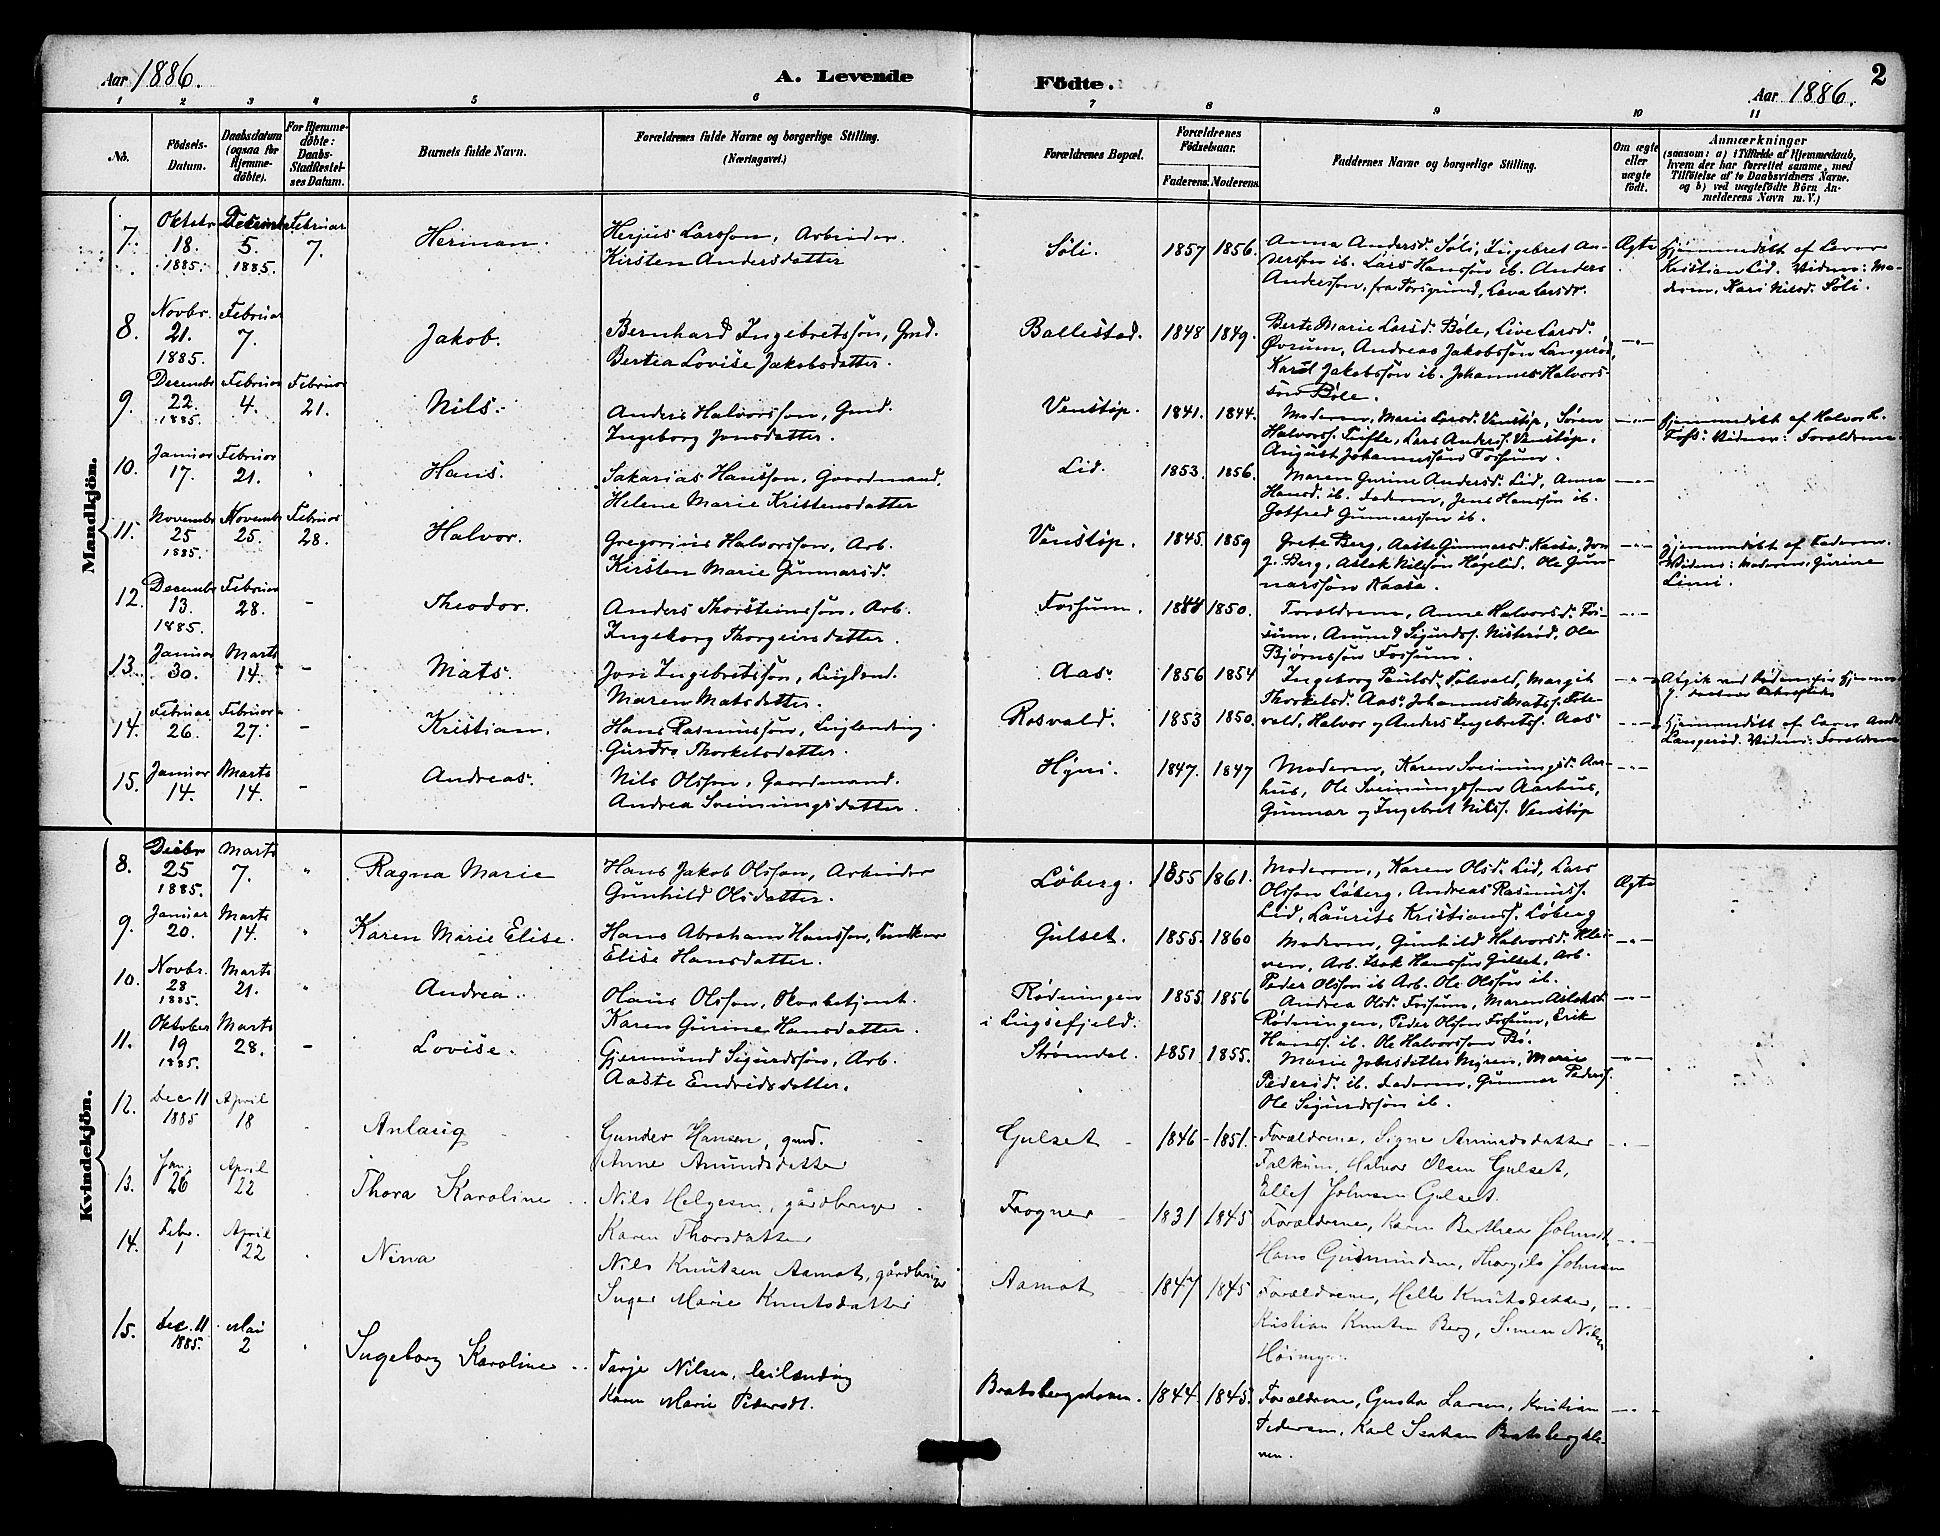 Aar 1886.
A. Levende
Födte.
Aar 1886.
2
1 2 3 4 5 6 7 8 9 10 11
No.
Födsels-
Datum.
Daabsdatum
(ogsaa for
Hjemme-
döbte).
For Hjemme-
döbte:
Daabs-
Stadfæstel-
ses Datum.
Barnets fulde Navn.
Forældrenes fulde Navne og borgerlige Stilling.
(Næringsvei.)
Forældrenes Bopæl.
Forældrenes
Födselsaar.
Faderens. Moderens.
Faddernes Navne og borgerlige Stilling.
Om ægte
eller
uægte
födt.
Anmærkninger
(saasom: a) i Tilfælde af Hjemmedaab,
hvem der har forrettet samme, med
Tilföielse af to Daabsvidners Navne.
og b) ved uægtefödte Börn An-
melderens Navn m. V.)
Mandkjön.
7. Oktobr 18. 1885. Decembr 5. 1885. Februar 7.
Herman.
Herjus Larsson, Arbeider.
Kirsten Andersdatter
Søli. 1857 1856.
Anna Andersd. Søli, Ingebret An-
derssøn ib. Lars Hanssøn ib. Anders
Anderssøn, fra Porsgrund, Lava Larsdr.
Ægte
Hjemmedøbt af Lærer
Kristian Lid. Vidner: Mo-
deren, Kari Nilsd. Søli.
8. Novbr. 21. 1885. Februar 7.
Jakob.
Bernhard Ingebretssøn, Gmd.
Bertea Lovise Jakobsdatter.
Ballestad. 1848 1849.
Berte Marie Larsd. Bøle, Live Larsd.
Øvrum, Andreas Jakobssøn Langerød,
Karel Jakobssøn ib. Johannes Halvors-
søn Bøle.
9. Decembr 22. 1885. Februar 4. Februar 21.
Nils.
Anders Halvorssøn, Gmd.
Ingeborg Jonsdatter.
Venstøp. 1841. 1844.
Moderen, Marie Larsd. Venstøp, Søren
Halvorss. Tufte, Lars Anderss. Venstøp,
August Johannessøn Fossum.
Hjemmedøbt af Halvor
Foss. Vidner: Forældrene
10. Januar 17. Februar 21.
Hans.
Sakarias Hanssøn, Gaardmand,
Helene Marie Kristensdatter
Lid. 1853. 1856.
Maren Gurine Andersd. Lid, Anna
Hansd. ib. Faderen, Jens Hanssøn ib.
Gotfred Gunnarssøn ib.
11. Novembr 25 1885. Novembr 25. Februar 28.
Halvor.
Gregorius Halvorssøn, Arb.
Kirsten Marie Gunnarsd.
Venstøp. 1845. 1859
Grete Berg, Aaste Gunnarsd. Kaasa, Jon
J. Berg, Aslak Nilssøn Høgelid. Ole Gun-
narssøn Kaasa.
Hjemmedøbt af Faderen.
Vidner: Moderen, Gurine
12. Decembr 13. 1885. Februar 28.
Theodor.
Anders Thorsteinssøn, Arb.
Ingeborg Thorgeirsdatter.
Fossum. 1844 1850.
Forældrene, Anne Halvorsd. Fos-
sum, Amund Sigurdss. Nisterød, Ole
Bjørnssøn Fossum.
13. Januar 30. Marts 14.
Mats.
Jon Ingebretssøn, Leiglend.
Maren Matsdatter.
Aas. 1856 1854
Ingeborg Paulsd. Folevald, Margit
Thorkelsd. Aas. Johannes Matss. Fole-
vald, Halvor og Anders Ingebretss. Aas
14. Februar 26. Februar 27.
Kristian.
Hans Rasmussøn, Leilending
Gurdro Thorkelsdatter.
Rosvald. 1853 1850.
Hjemmedøbt af
Langerød. Vidner: Forældrene
15. Januar 14. Marts 14.
Andreas.
Nils Olssøn, Gaardmand.
Andrea Sveinungsdatter.
Hyni. 1847. 1847
Moderen, Karen Sveinungsd. Aar-
hus, Ole Sveinungssøn Aarhus,
Gunnar og Ingebret Nilss. Venstøp
Kvindekjön.
8. Decbr 25 1885. Marts 7.
Ragna Marie
Hans Jakob Olssøn, Arbeider
Gunhild Olsdatter.
Løberg. 1855 1861.
Moderen, Karen Olsd. Lid, Lars
Olssøn Løberg, Andreas Rasmuss.
Lid, Laurits Kristianss. Løberg
Ægte
9. Januar 20. Marts 14.
Karen Marie Elise.
Hans Abraham Hanssøn, Snedker
Elise Hansdatter.
Gulset. 1855. 1860
Moderen, Gunhild Halvorsd. Klei-
ven, Arb. Isak Hanssøn Gulset, Arb.
Peder Olssøn ib Arb. Ole Olssøn ib.
10. Novbr. 28 1885. Marts 21.
Andrea.
Olaus Olssøn, Skovbetjent.
Karen Gurine Hansdatter.
Rødningen
i Luksefjeld.
1855 1856
Andrea Olsd. Fossum, Maren Aslaksd.
Rødningen, Peder Olssøn Fossum, Erik
Hanss. ib. Ole Halvorssøn Bø.
11. Oktober 19 1885. Marts 28.
Lovise.
Gjermund Sigurdssøn, Arb.
Aaste Endridsdatter.
Strømdal. 1851 1855.
Marie Jakobsdatter Myren, Marie
Pedersd. ib. Faderen, Gunnar Pederss.
Ole Sigurdssøn ib.
12. Dec 11 1885 April 18
Anlaug
Gunder Hansen, gmd.
Anne Amundsdatter
Gulset 1846 1851.
Forældrene, Signe Amundsdatter
Falkum, Halvor Olsen Gulset,
Ellef Johnsen Gulset.
13. Jan. 26 April 22
Thora Karoline
Nils Helgesen, gårdbruger
Karen Thorsdatter
Frogner 1831 1845
Forældrene, Karen Berthea Johnsdt,
Hans Gudmundsen, Thorgils Johnsen
14. Febr. 1 April 22
Nina
Nils Knutsen Aamot, gårdbruger
Inger Marie Knutsdatter
Aamot 1847 1845
Forældrene, Helle Knutsdatter,
Kristian Knutsen Berg, Simen Nilsen
15. Dec. 11 1885. Mai 2
Ingeborg Karoline
Tarje Nilsen, leilending
Karen Marie Pedersdt.
Bratsbergkleven. 1844. 1845.
Forældrene, Gusta Larsen, Kristian
Pedersen, Karl Bratsbergkle-
ven.